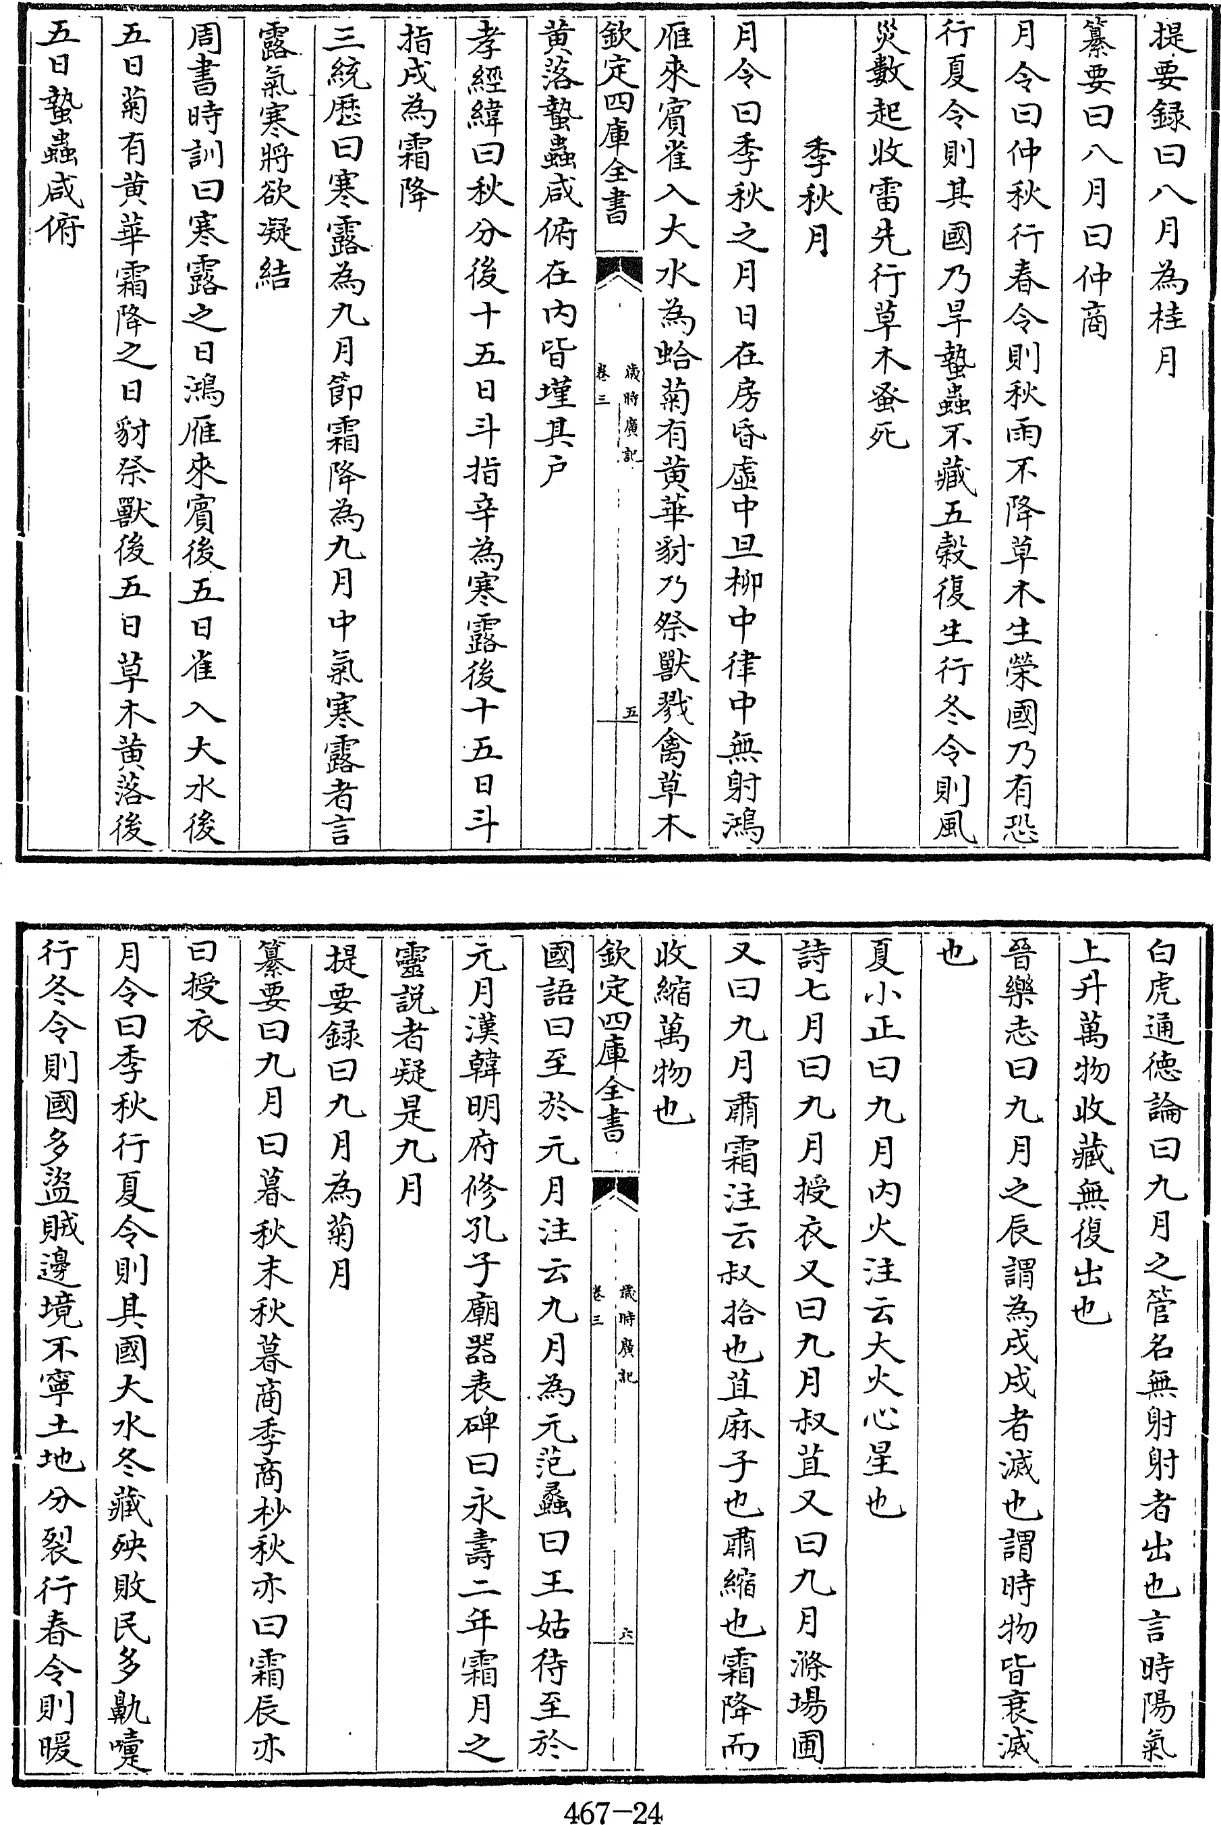 提要録曰八月為桂月
纂要曰八月曰仲商
月令曰仲秋行春令則秋雨不降草木生榮國乃有恐
行夏令則其國乃旱蟄蟲不藏五榖復生行冬令則風
災數起收雷先行草木蚤死
季秋月
月令曰季秋之月日在房昏虛中旦柳中律中無射鴻
雁來賓雀入大水為蛤菊有黄華豺乃祭獸戮禽草木
欽定四庫全書
歲時廣記
卷三
五
黄落蟄蟲咸俯在内皆墐其户
孝經緯曰秋分後十五日斗指辛為寒露後十五日斗
指戌為霜降
三統歴曰寒露為九月節霜降為九月中氣寒露者言
露氣寒將欲凝結
周書時訓曰寒露之日鴻雁來賓後五日雀入大水後
五日菊有黄華霜降之日豺祭獸後五日草木黄落後
五日蟄蟲咸俯
白虎通德論曰九月之管名無射射者出也言時陽氣
上升萬物收藏無復出也
晉樂志曰九月之辰謂為戌戌者滅也謂時物皆衰滅
也
夏小正曰九月内火注云大火心星也
詩七月曰九月授衣又曰九月叔苴又曰九月滌場圃
又曰九月肅霜注云叔拾也苴麻子也肅縮也霜降而
收縮萬物也
欽定四庫全書
歲時廣記
卷三
六
國語曰至於元月注云九月為元范蠡曰王姑待至於
元月漢韓明府修孔子廟器表碑曰永壽二年霜月之
靈説者疑是九月
提要録曰九月為菊月
纂要曰九月曰暮秋末秋暮商季商杪秋亦曰霜辰亦
曰授衣
月令曰季秋行夏令則其國大水冬藏殃敗民多鼽嚏
行冬令則國多盜賊邊境不寧土地分裂行春令則暖
467-24